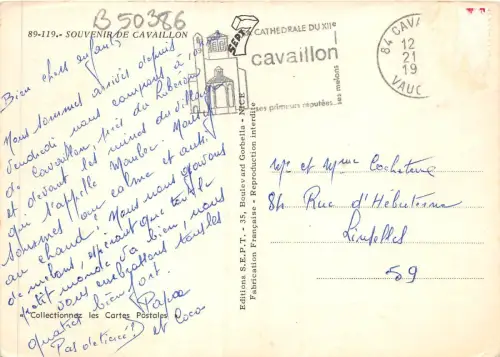 B 50386
89-119.- SOUVENIR DE CAVAILLON
Bien chers enfants
Nous sommes arrivés depuis
vendredi nous campons à
de Cavaillon, près du Lubéron
et devant les ruines du village
qui s'appelle Maubec. Nous
sommes au calme et aussi
au chaud. Nous nous gavons
de melons, espérant que tout le
petit monde va bien, nous
vous embrassons tous les
quatres bien fort.
Papa
et Coco
Collectionnez les Cartes Postales
Editions S.E.P.T. - 35, Boulevard Gorbella - NICE
Fabrication Française - Reproduction Interdite
SEPT
CATHEDRALE DU XIIe
cavaillon
ses primeurs réputées...
ses melons
84 CAVAI
12
21
19
VAUC
Mr et Mme Cocheteux
84 Rue d'Hébuterne
Linselles
59